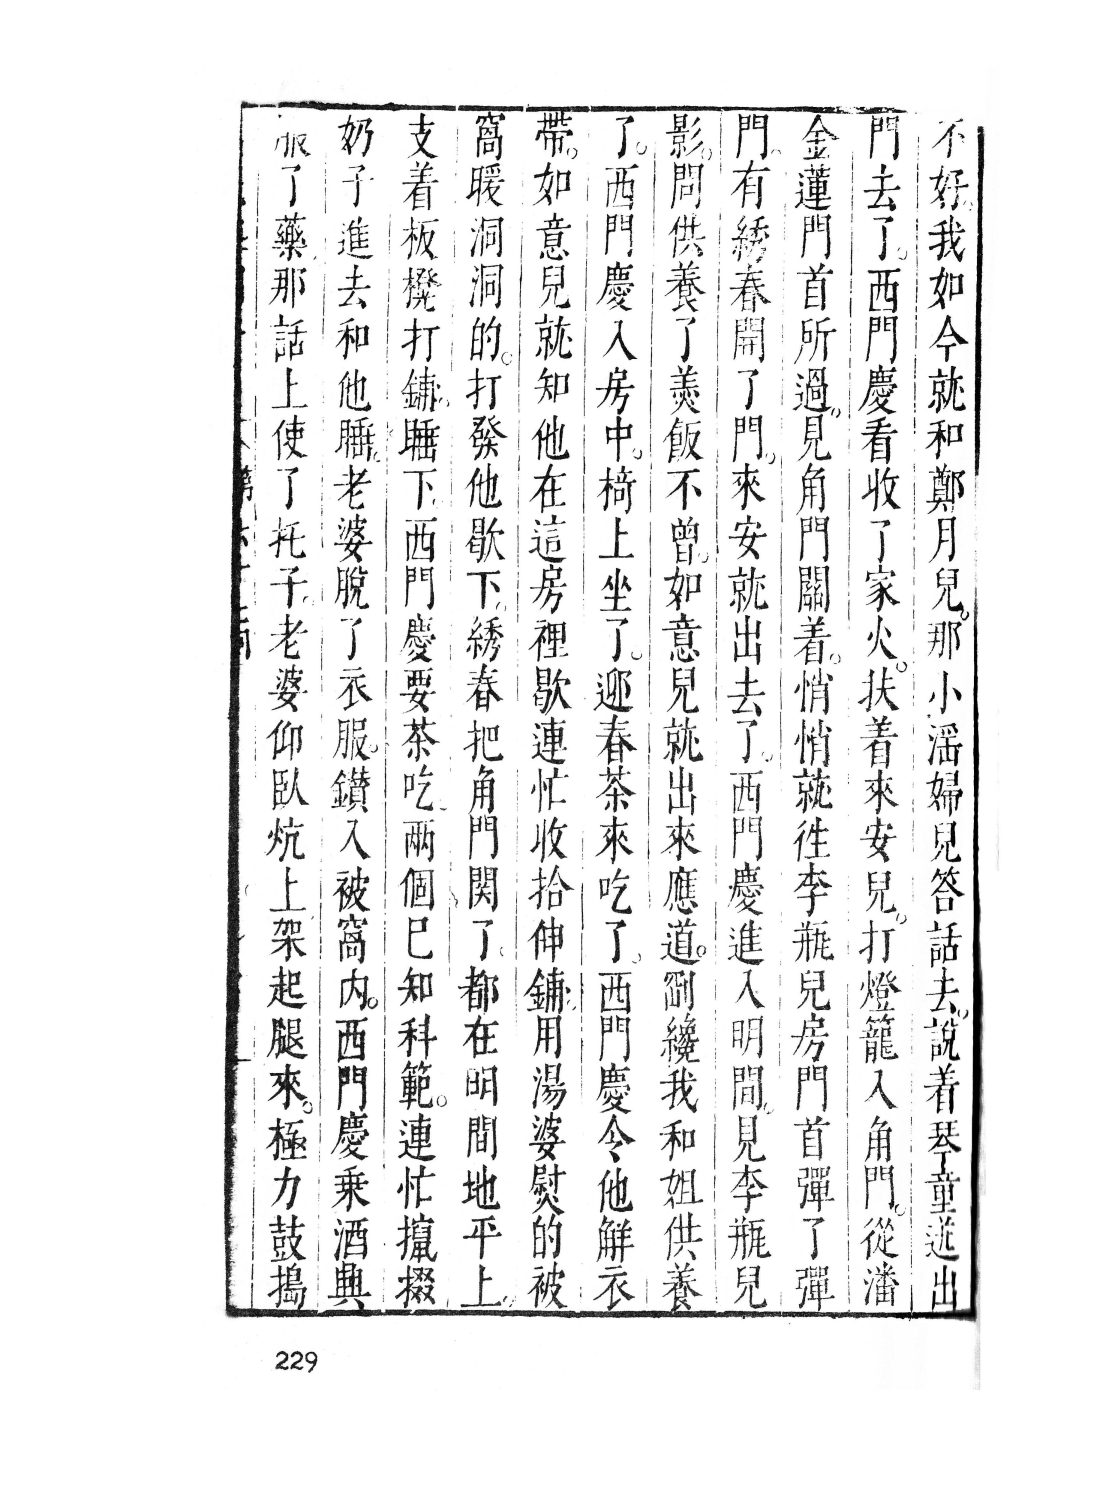 不好。我如今就和鄭月兒。那小淫婦兒答話去。說着琴童送出
門去了。西門慶看收了家火。扶着來安兒。打燈籠入角門。從潘
金蓮門首所過。見角門關着。悄悄就徃李瓶兒房門首彈了彈
門。有綉春開了門。來安就出去了。西門慶進入明間。見李瓶兒
影。問供養了羮飯不曾。如意兒就出來應道。剛纔我和姐供養
了。西門慶入房中。椅上坐了。迎春茶來吃了。西門慶令他觧衣
帶。如意兒就知他在這房裡歇連忙收拾伸鋪。用湯婆熨的被
窩暖洞洞的。打發他歇下。綉春把角門関了。都在明間地平上。
支着板櫈打鋪。睡下。西門慶要茶吃。兩個已知科範。連忙攛掇
奶子進去和他睡。老婆脫了衣服。鑚入被窩內。西門慶乗酒興
服了藥。那話上使了托子。老婆仰臥炕上架起腿來。極力鼓搗
229